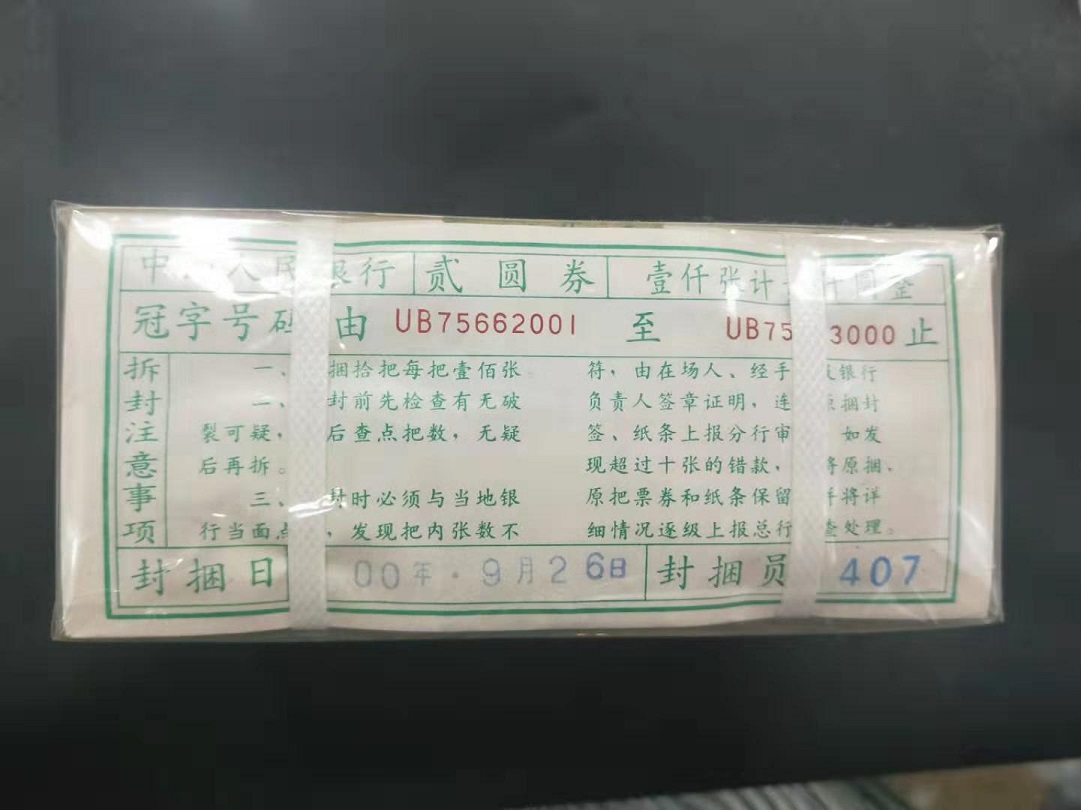 中 人民 银行 贰圆券 壹仟张计 圆整
冠字号码 由 UB75662001 至 UB75 3000 止
拆封注意事项
一、 捆拾把每把壹佰张
二、 封前先检查有无破
裂可疑, 后查点把数,无疑
后再拆。
三、 封时必须与当地银
行当面点 ,发现把内张数不
符,由在场人、经手 银行
负责人签章证明,连 原捆封
签、纸条上报分行审 如发
现超过十张的错款, 将原捆、
原把票券和纸条保留 并将详
细情况逐级上报总行 查处理。
封捆日 00年.9月26日 封捆员 407